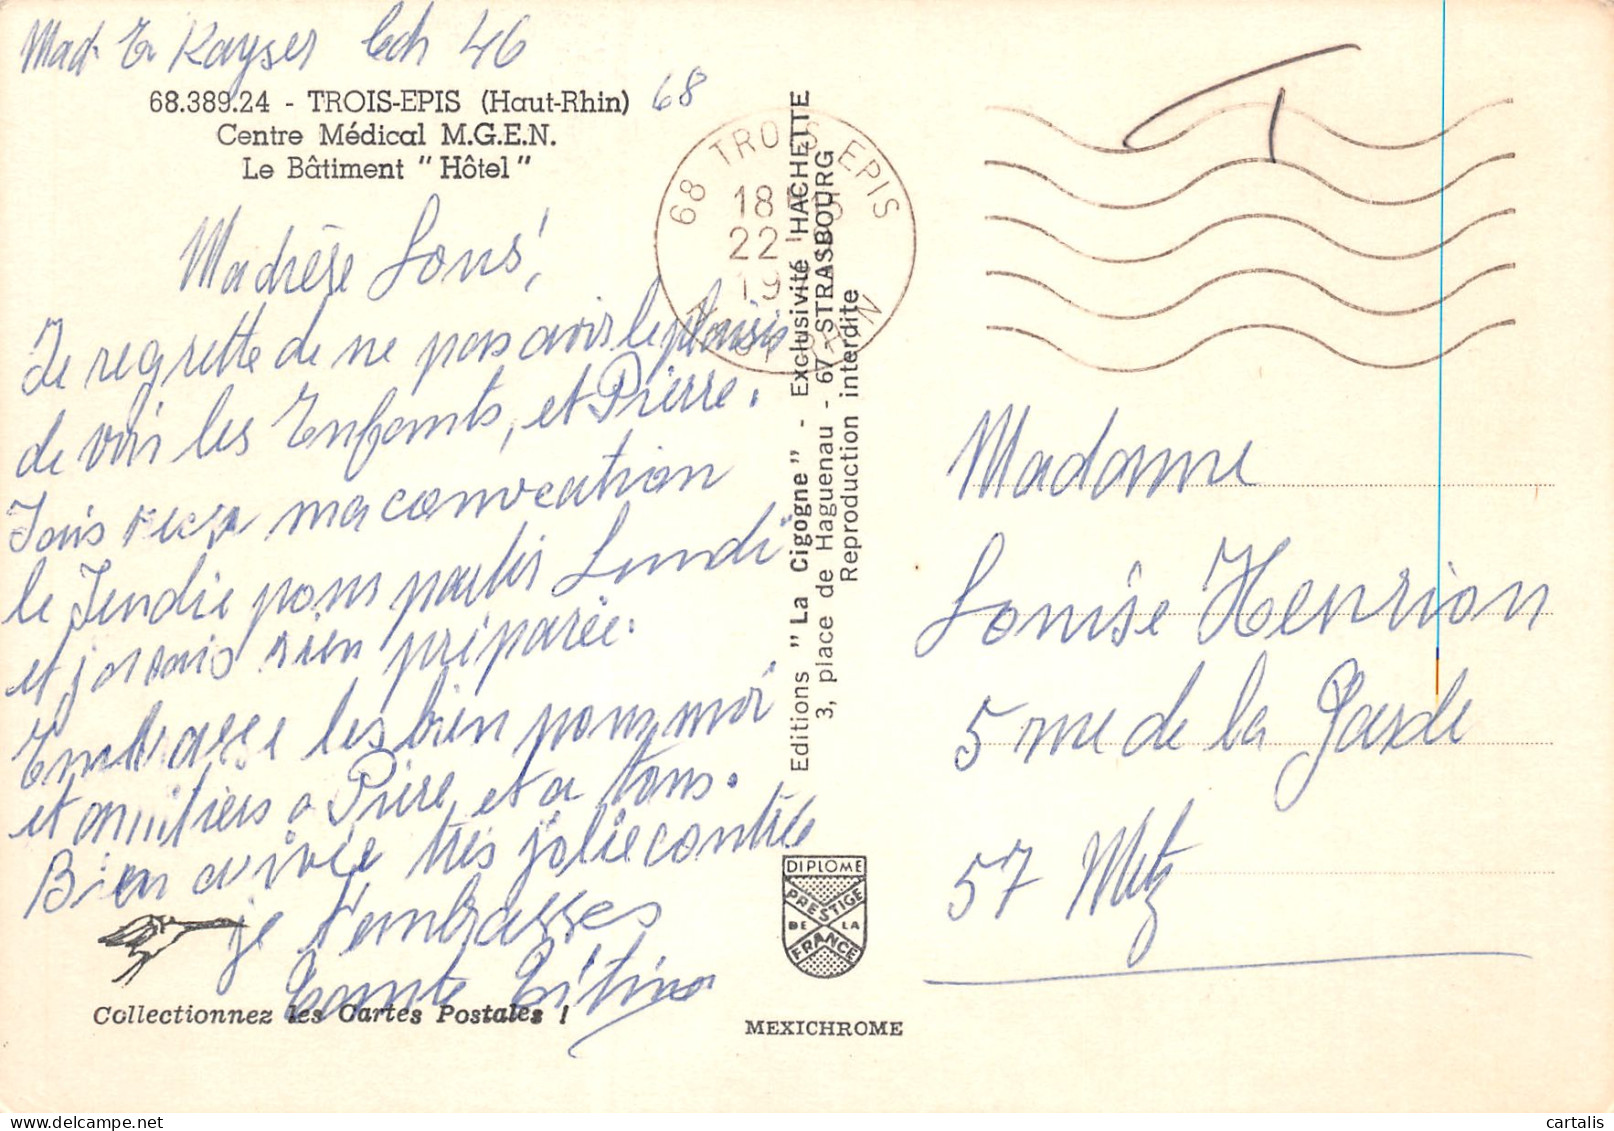 Mad E Kayser Ech 46
68
68.389.24 - TROIS-EPIS (Haut-Rhin)
Centre Médical M.G.E.N.
Le Bâtiment "Hôtel"
Ma
Je regrette de ne pas avoir le plaisir
de voir les Enfants, et Pierre.
ma convocation
le Jeudie pour partir Lundi
et j'orrais rien préparée.
Embrasse les bien pour moi
et amitiers a Pière, et a tous.
Bien arivée très jolie contrée
je t'embrasses
Tante Titine
Collectionnez les Cartes Postales !
68 TROIS-EPIS
18H15
22
19
HAUT-RHIN
Editions "La Cigogne" - Exclusivité HACHETTE
3, place de Haguenau - 67-STRASBOURG
Reproduction interdite
DIPLOME
PRESTIGE
DE LA
FRANCE
MEXICHROME
T
Madame
Louise Henrion
5 rue de la Garde
57 Metz
cartalis